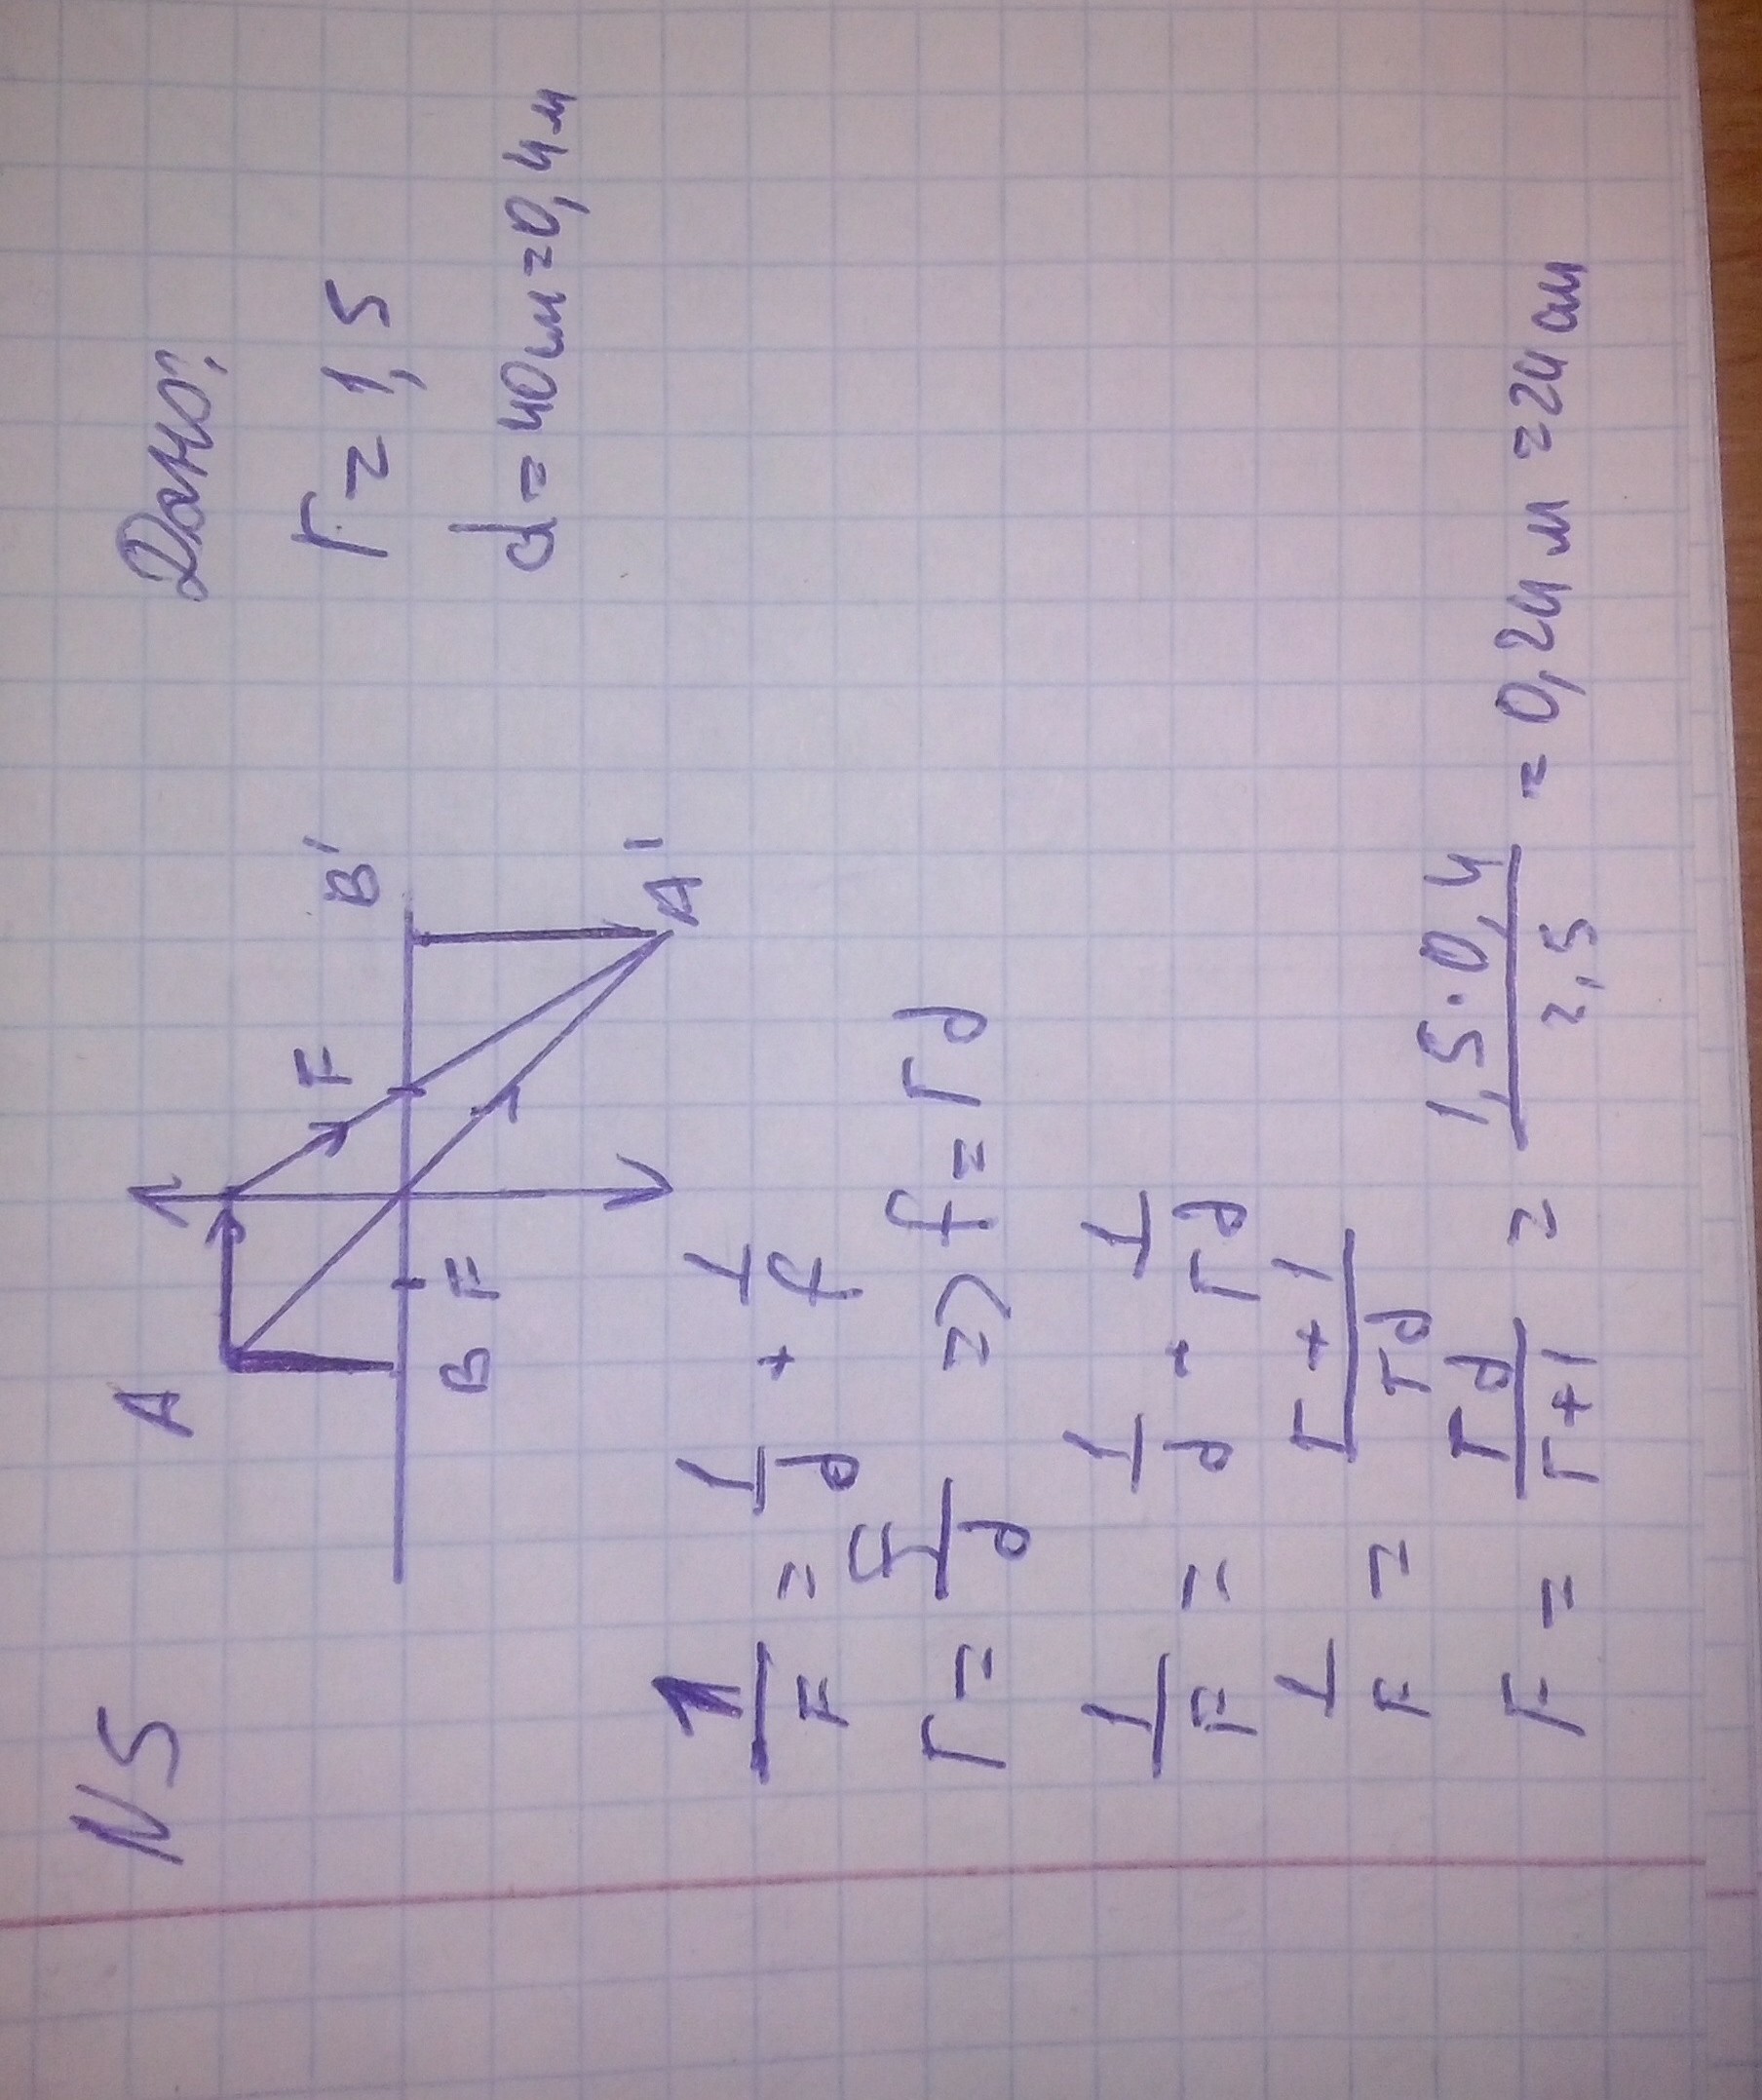 N5
Дано:
Г = 1,5
d = 40см = 0,4м
A F B'
B F A'
1/F = 1/d + 1/f
Г = f/d => f = Гd
1/F = 1/d + 1/Гd
1/F = Г+1/Гd
F = Гd/Г+1 = 1,5·0,4/2,5 = 0,24 м = 24 см